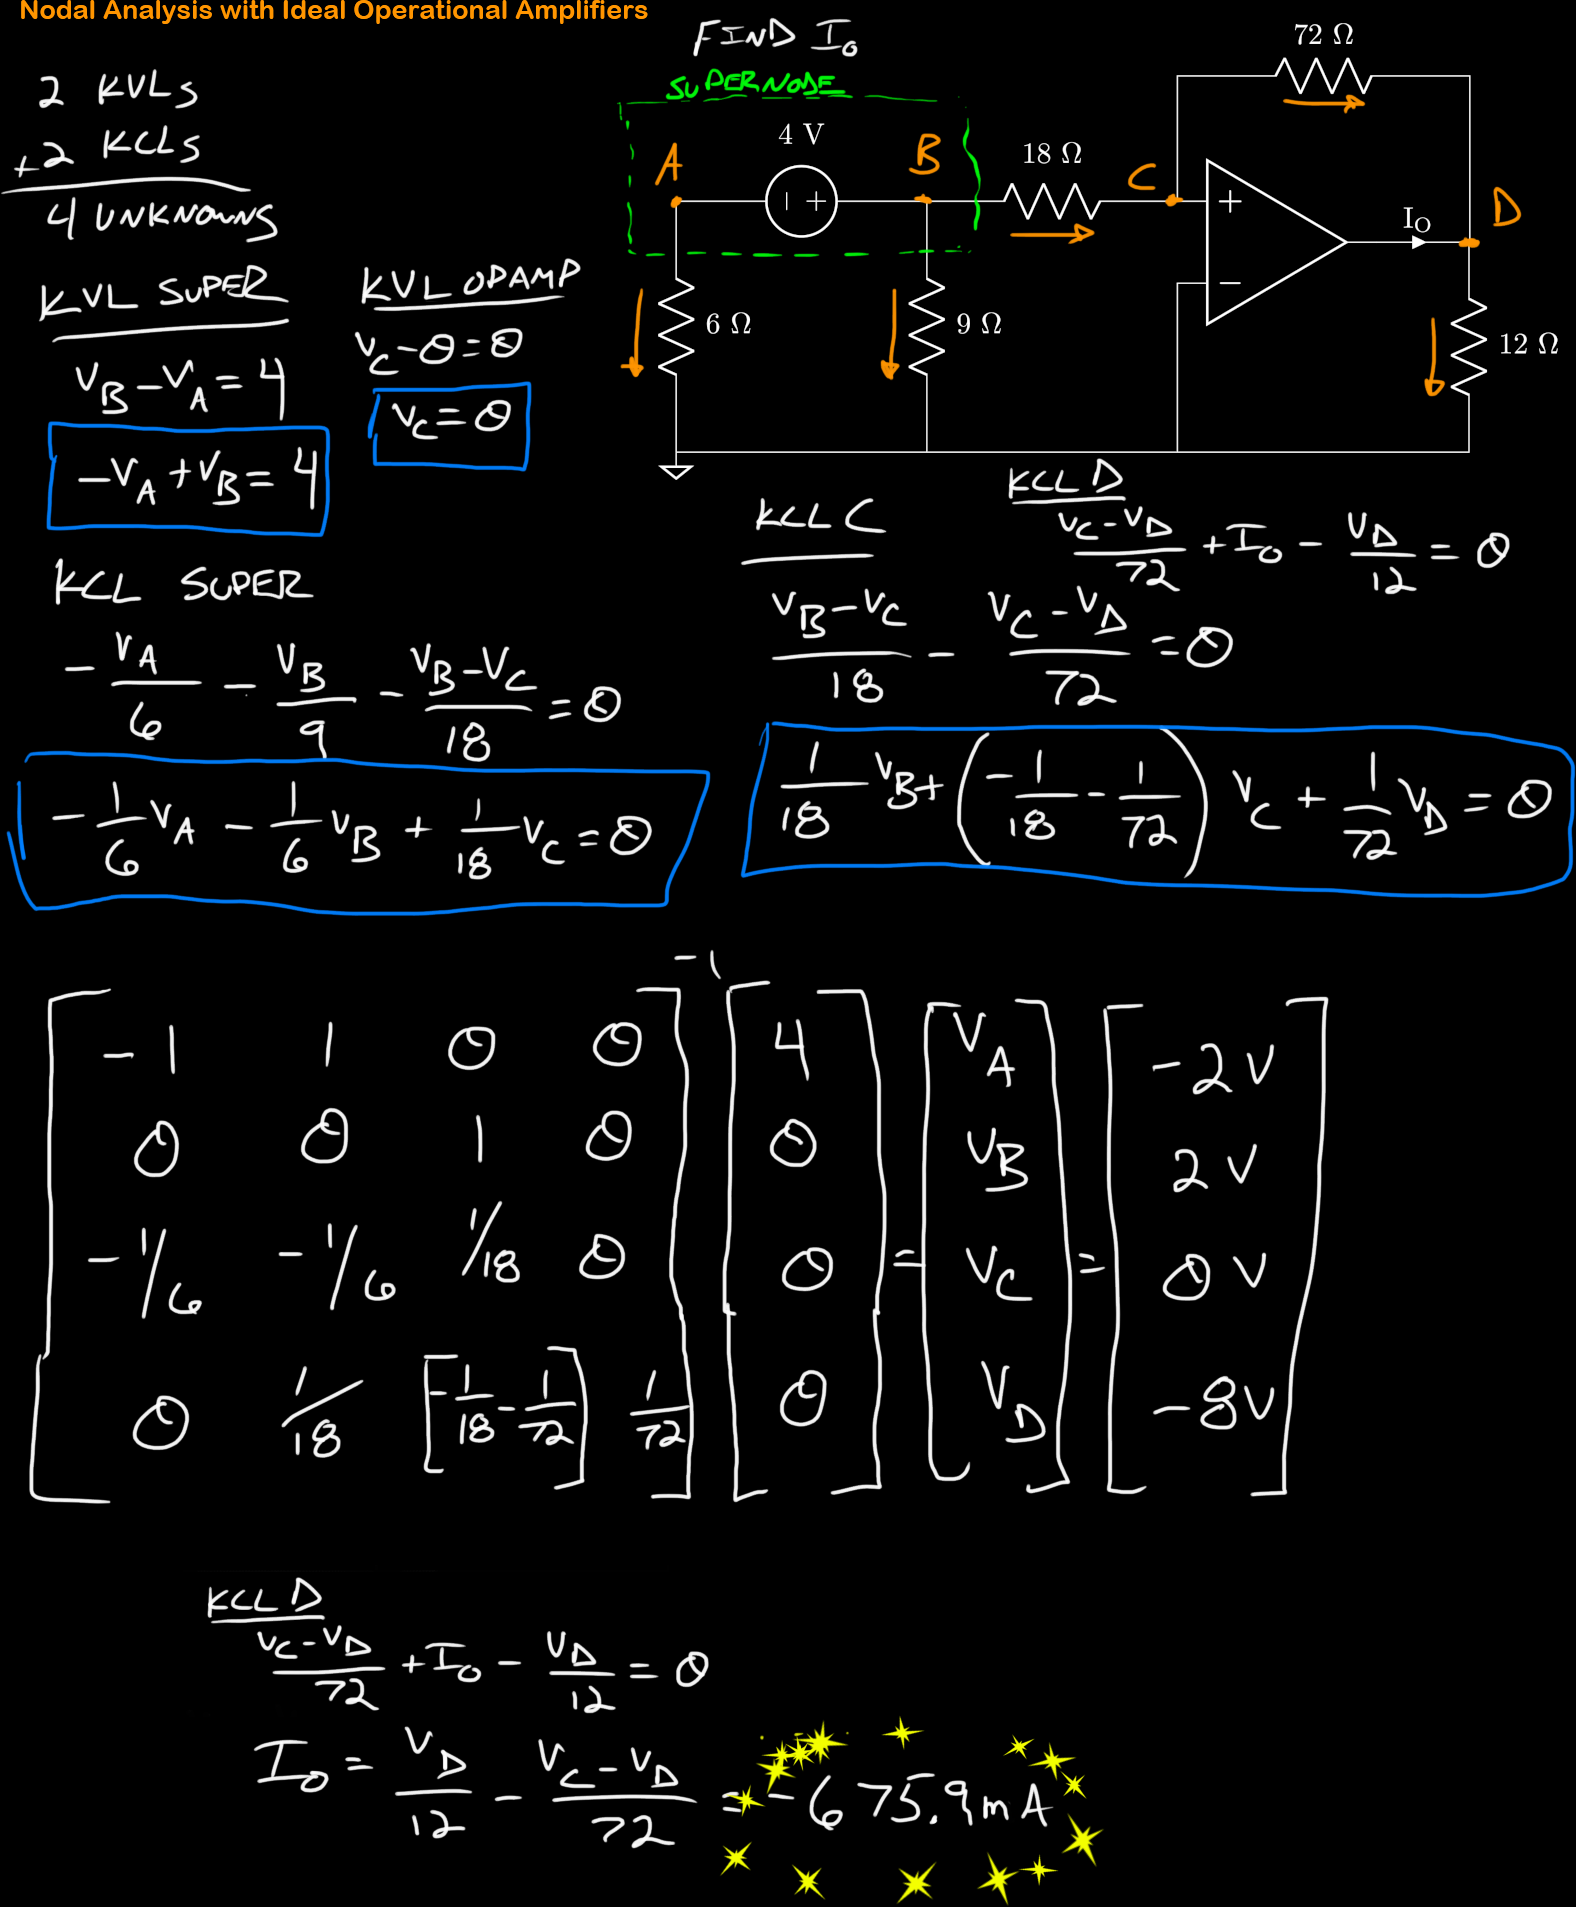 Nodal Analysis with Ideal Operational Amplifiers
FIND I₀
SUPERNODE
2 KVLs
+2 KCLs
4 UNKNOWNS
72 Ω
4 V
A
B
18 Ω
C
+
−
I_O
D
6 Ω
9 Ω
12 Ω
KVL SUPER
V_B − V_A = 4
−V_A + V_B = 4
KVL OPAMP
V_C − 0 = 0
V_C = 0
KCL SUPER
−V_A/6 − V_B/9 − (V_B − V_C)/18 = 0
−1/6 V_A − 1/6 V_B + 1/18 V_C = 0
KCL C
(V_B − V_C)/18 − (V_C − V_D)/72 = 0
1/18 V_B + (−1/18 − 1/72) V_C + 1/72 V_D = 0
KCL D
(V_C − V_D)/72 + I_O − V_D/12 = 0
[−1 1 0 0]⁻¹ [4] = [V_A] = [−2 V]
[0 0 1 0] [0] [V_B] [2 V]
[−1/6 −1/6 1/18 0] [0] [V_C] [0 V]
[0 1/18 [−1/18 − 1/72] 1/72] [0] [V_D] [−8 V]
KCL D
(V_C − V_D)/72 + I_O − V_D/12 = 0
I_O = V_D/12 − (V_C − V_D)/72 = −675.9 mA